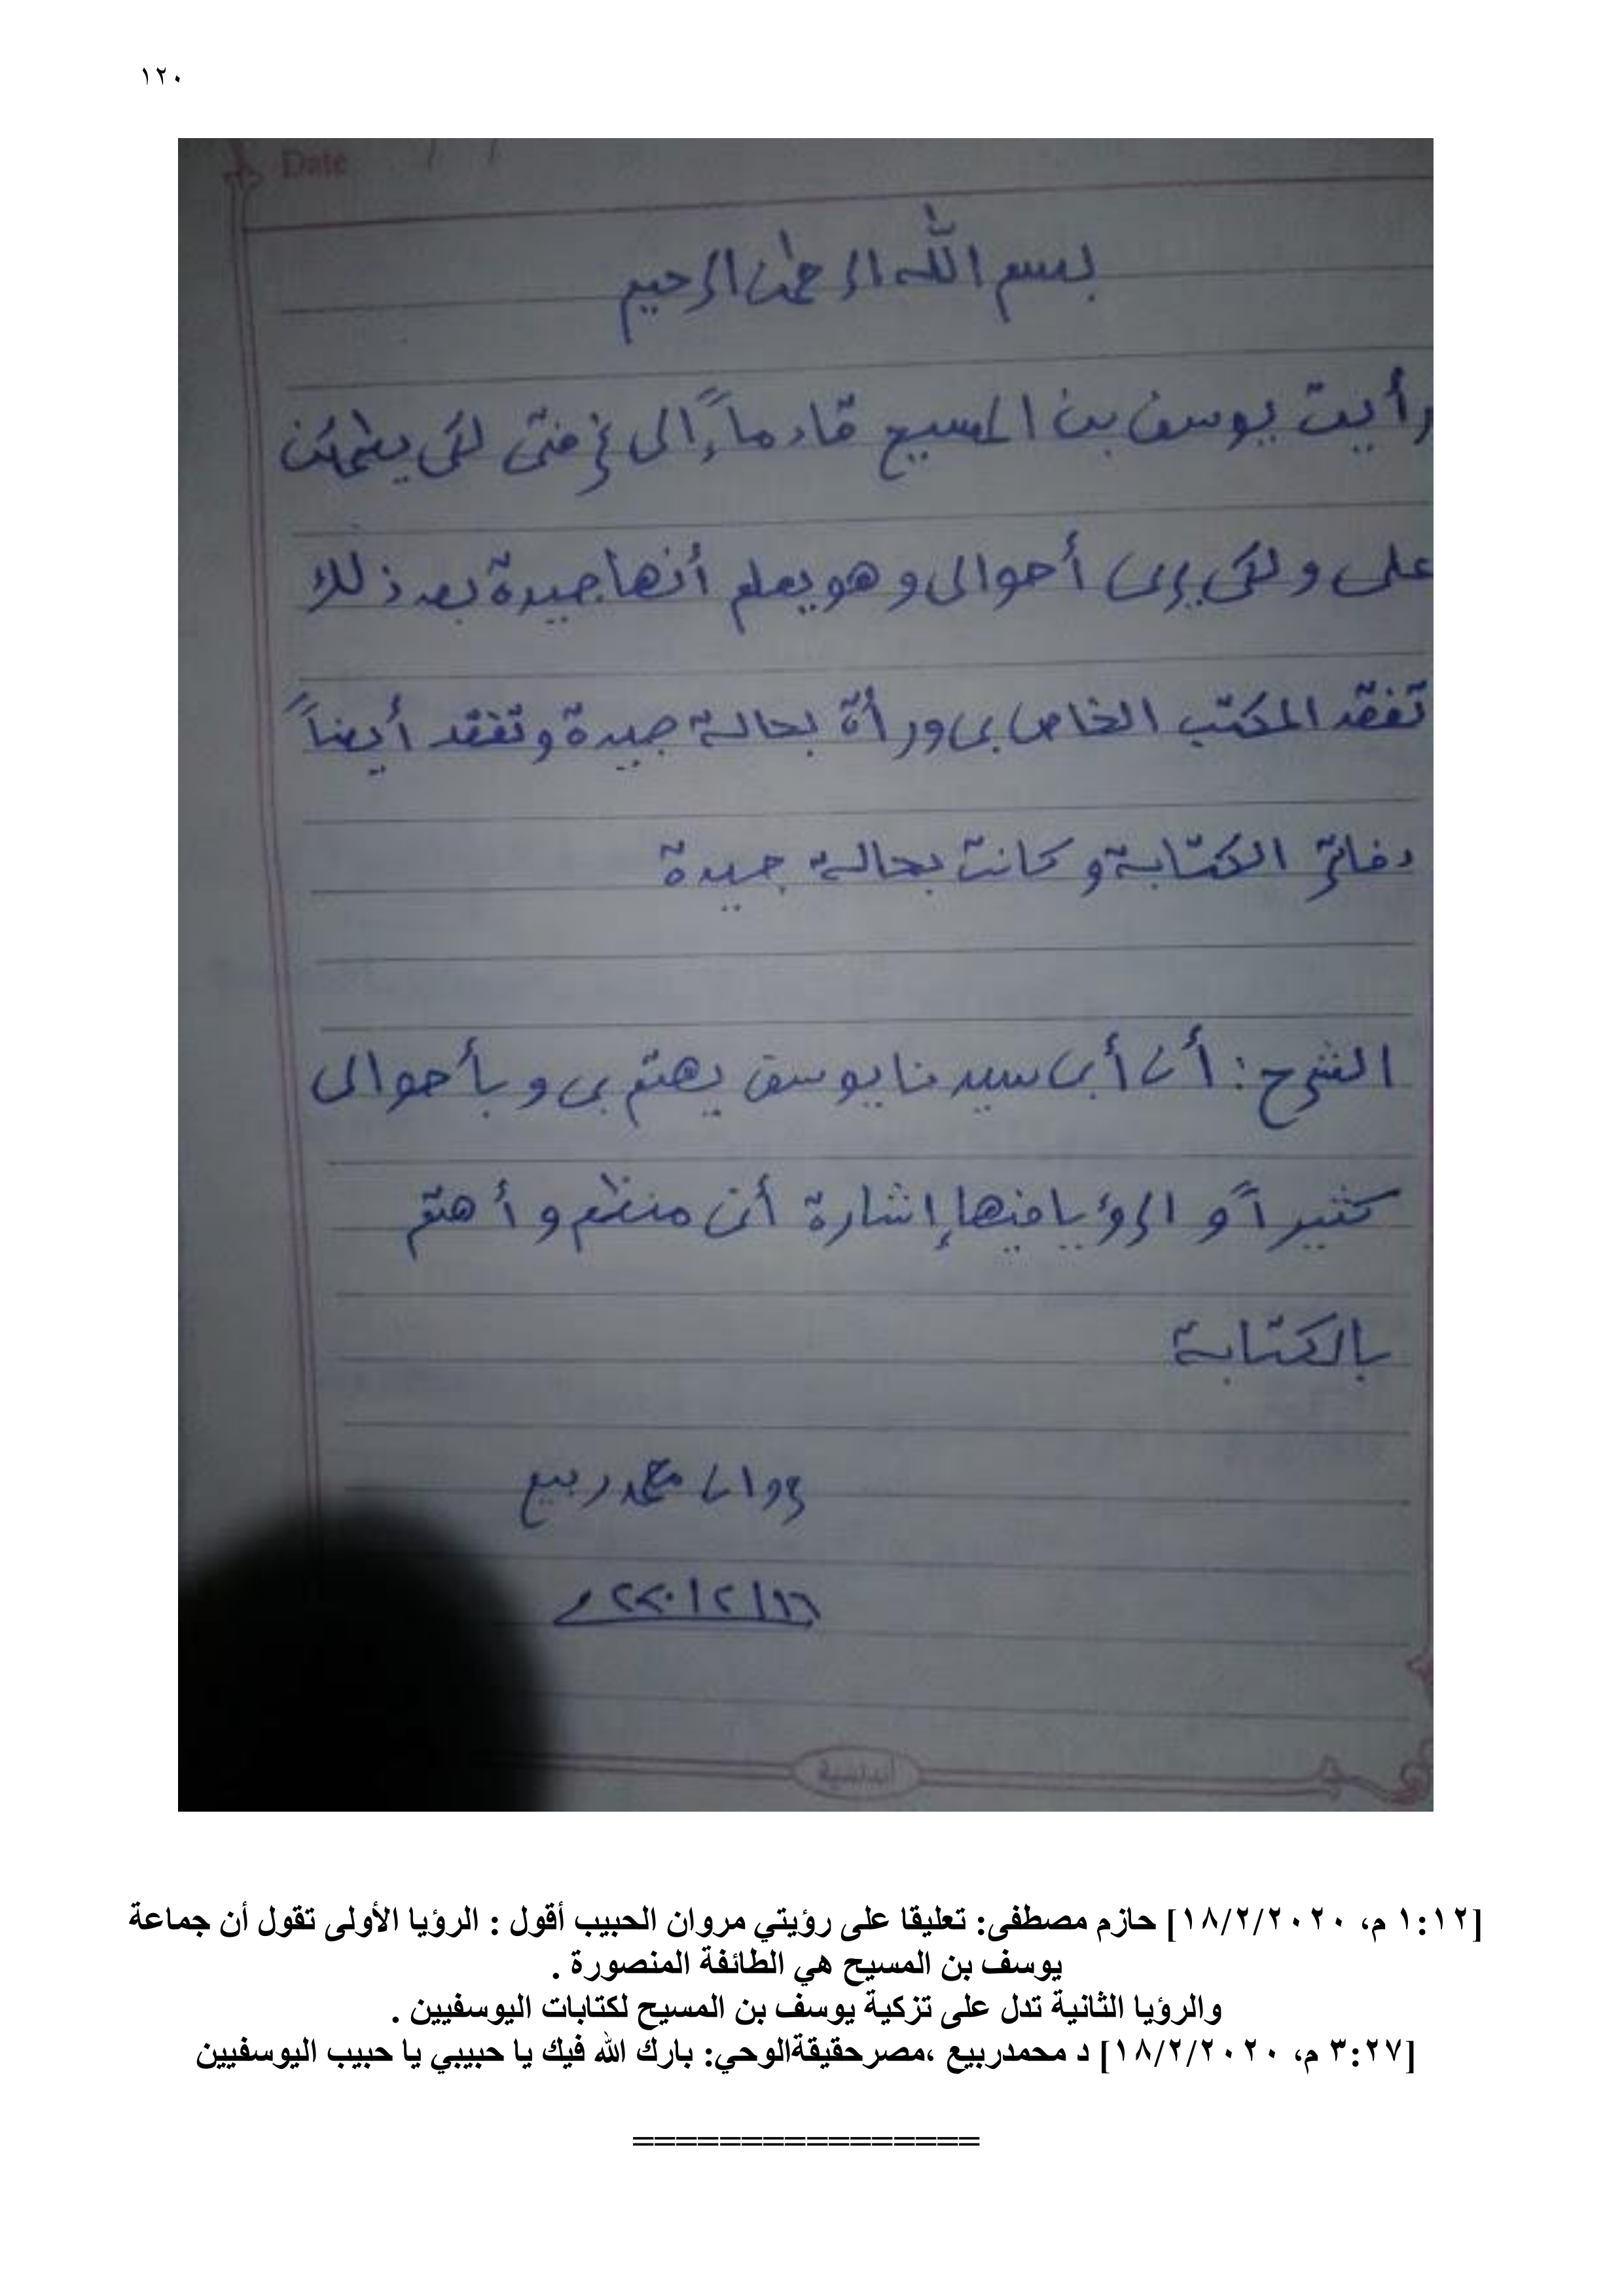 ١٢٠
Date / /
بسم الله الرحمن الرحيم
رأيت يوسف بن المسيح قادماً إلى غرفتى لكى يطمئن
على ولكى يرى أحوالى وهو يعلم أنها جيدة بعد ذلك
تفقد المكتب الخاص بى ورأة بحالة جيدة وتفقد أيضاً
دفاتر الكتابة وكانت بحالة جيدة
الشرح: أن أبى سيدنا يوسف يهتم بى وبأحوالى
كثيراً و الرؤيا فيها إشارة أنى منظم و أهتم
بالكتابة
مروان محمد ربيع
١٦/٢/٢٠٢٠م
أندلسية
[١:١٢ م، ١٨/٢/٢٠٢٠] حازم مصطفى: تعليقا على رؤيتي مروان الحبيب أقول : الرؤيا الأولى تقول أن جماعة
يوسف بن المسيح هي الطائفة المنصورة .
والرؤيا الثانية تدل على تزكية يوسف بن المسيح لكتابات اليوسفيين .
[٣:٢٧ م، ١٨/٢/٢٠٢٠] د محمدربيع ،مصرحقيقةالوحي: بارك الله فيك يا حبيبي يا حبيب اليوسفيين
================